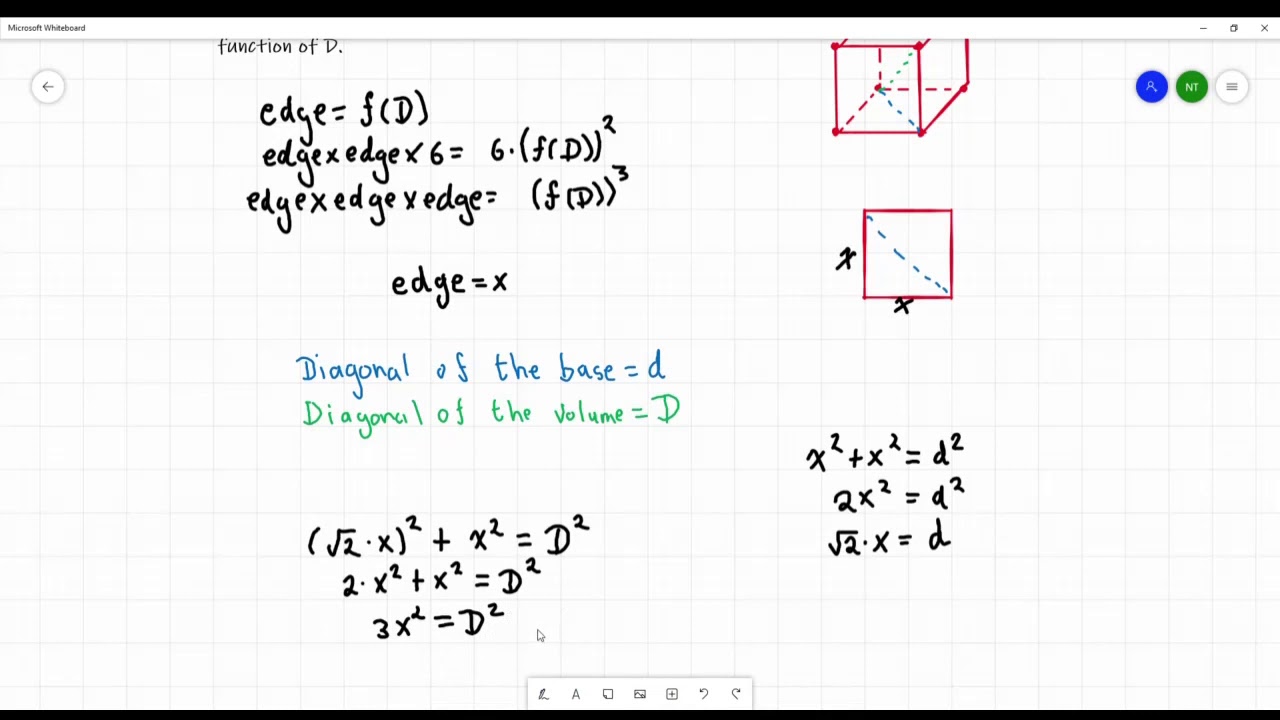 Microsoft Whiteboard
function of D.
NT
edge = f(D)
edge x edge x 6 = 6·(f(D))²
edge x edge x edge = (f(D))³
edge = x
x
x
Diagonal of the base = d
Diagonal of the volume = D
x² + x² = d²
2x² = d²
√2·x = d
(√2·x)² + x² = D²
2·x² + x² = D²
3x² = D²
A